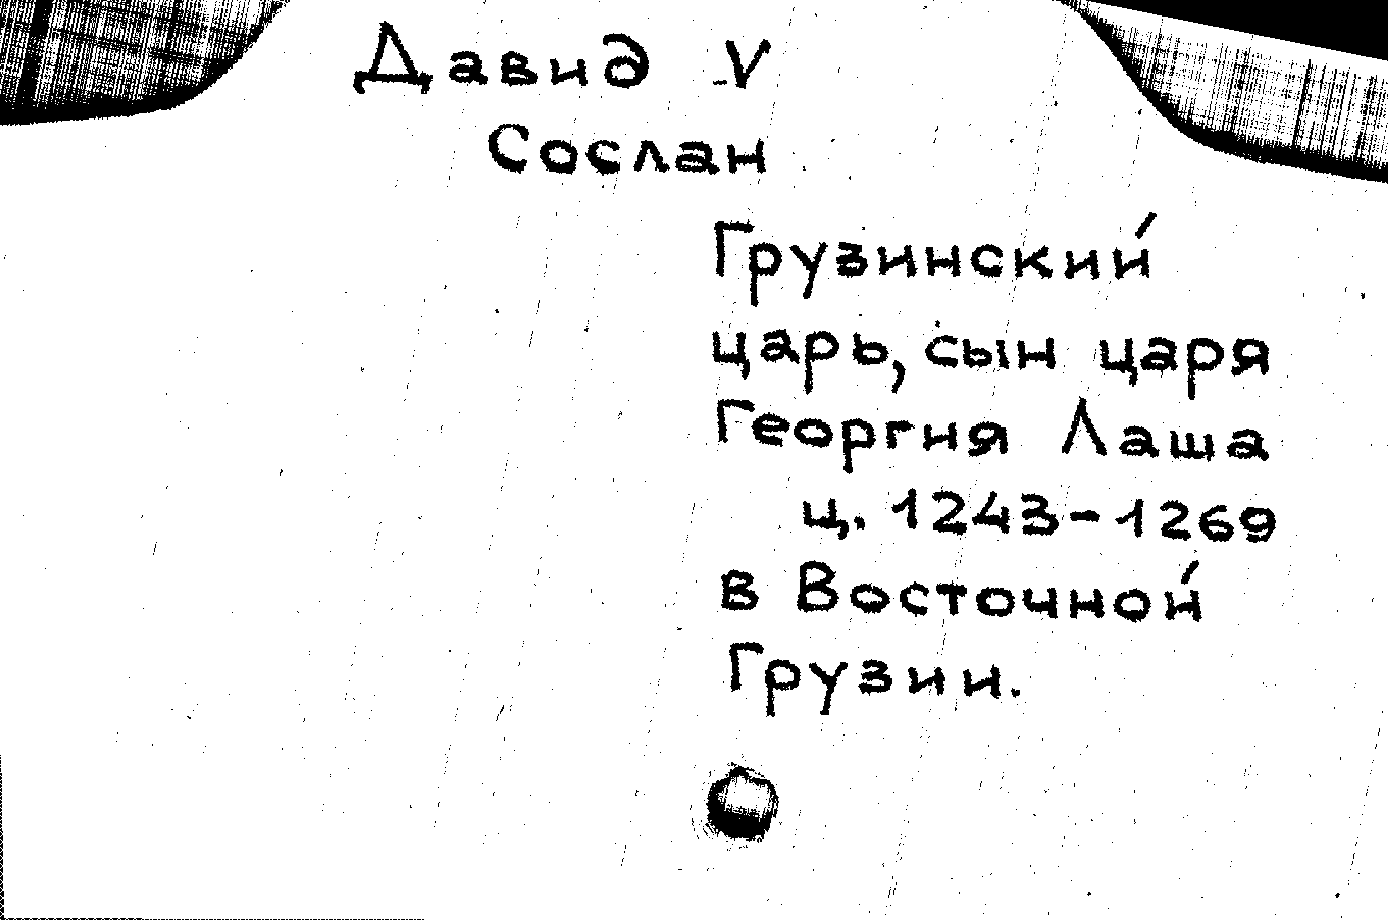 Давид V
Сослан
Грузинский
царь, сын царя
Георгия Лаша
ц. 1243-1269
в Восточной
Грузии.